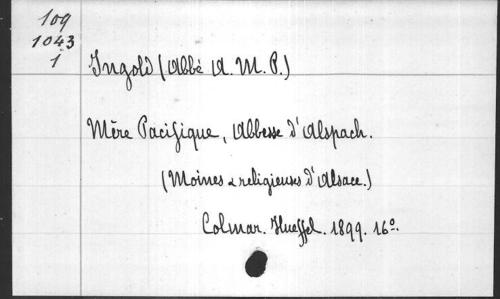 109
1043
1
Ingold (Abbé A. M. P.)
Mère Pacifique, Abbesse d'Alspach.
(Moines & religieuses d'Alsace.)
Colmar. Hueffel. 1899. 16º.